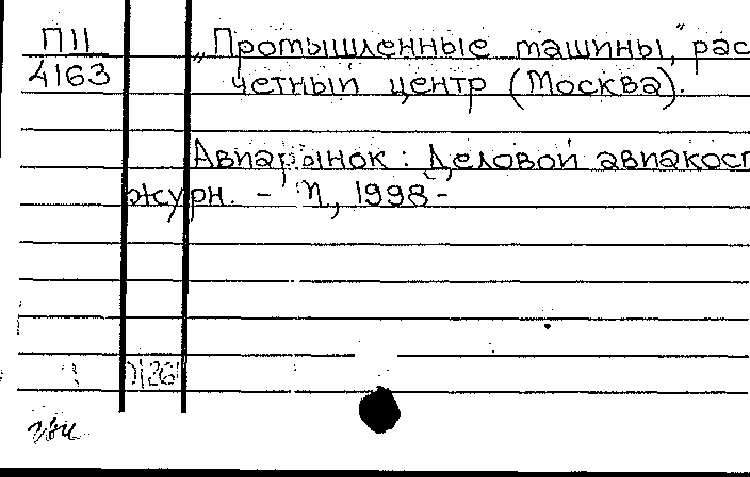 П11 „Промышленные машины,” рас
4163 четный центр (Москва).
Авиарынок : Деловой авиакосм
журн. – М, 1998-